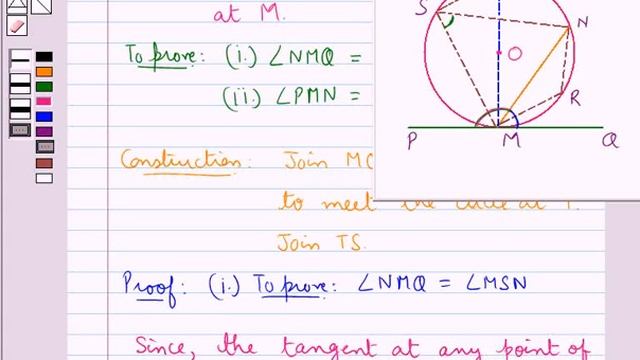 at M.
To prove: (i.) ∠NMQ =
(ii.) ∠PMN =
Construction: Join MO
to meet the circle at T.
Join TS.
Proof: (i.) To prove: ∠NMQ = ∠MSN
Since, the tangent at any point of
S
N
O
R
P
M
Q